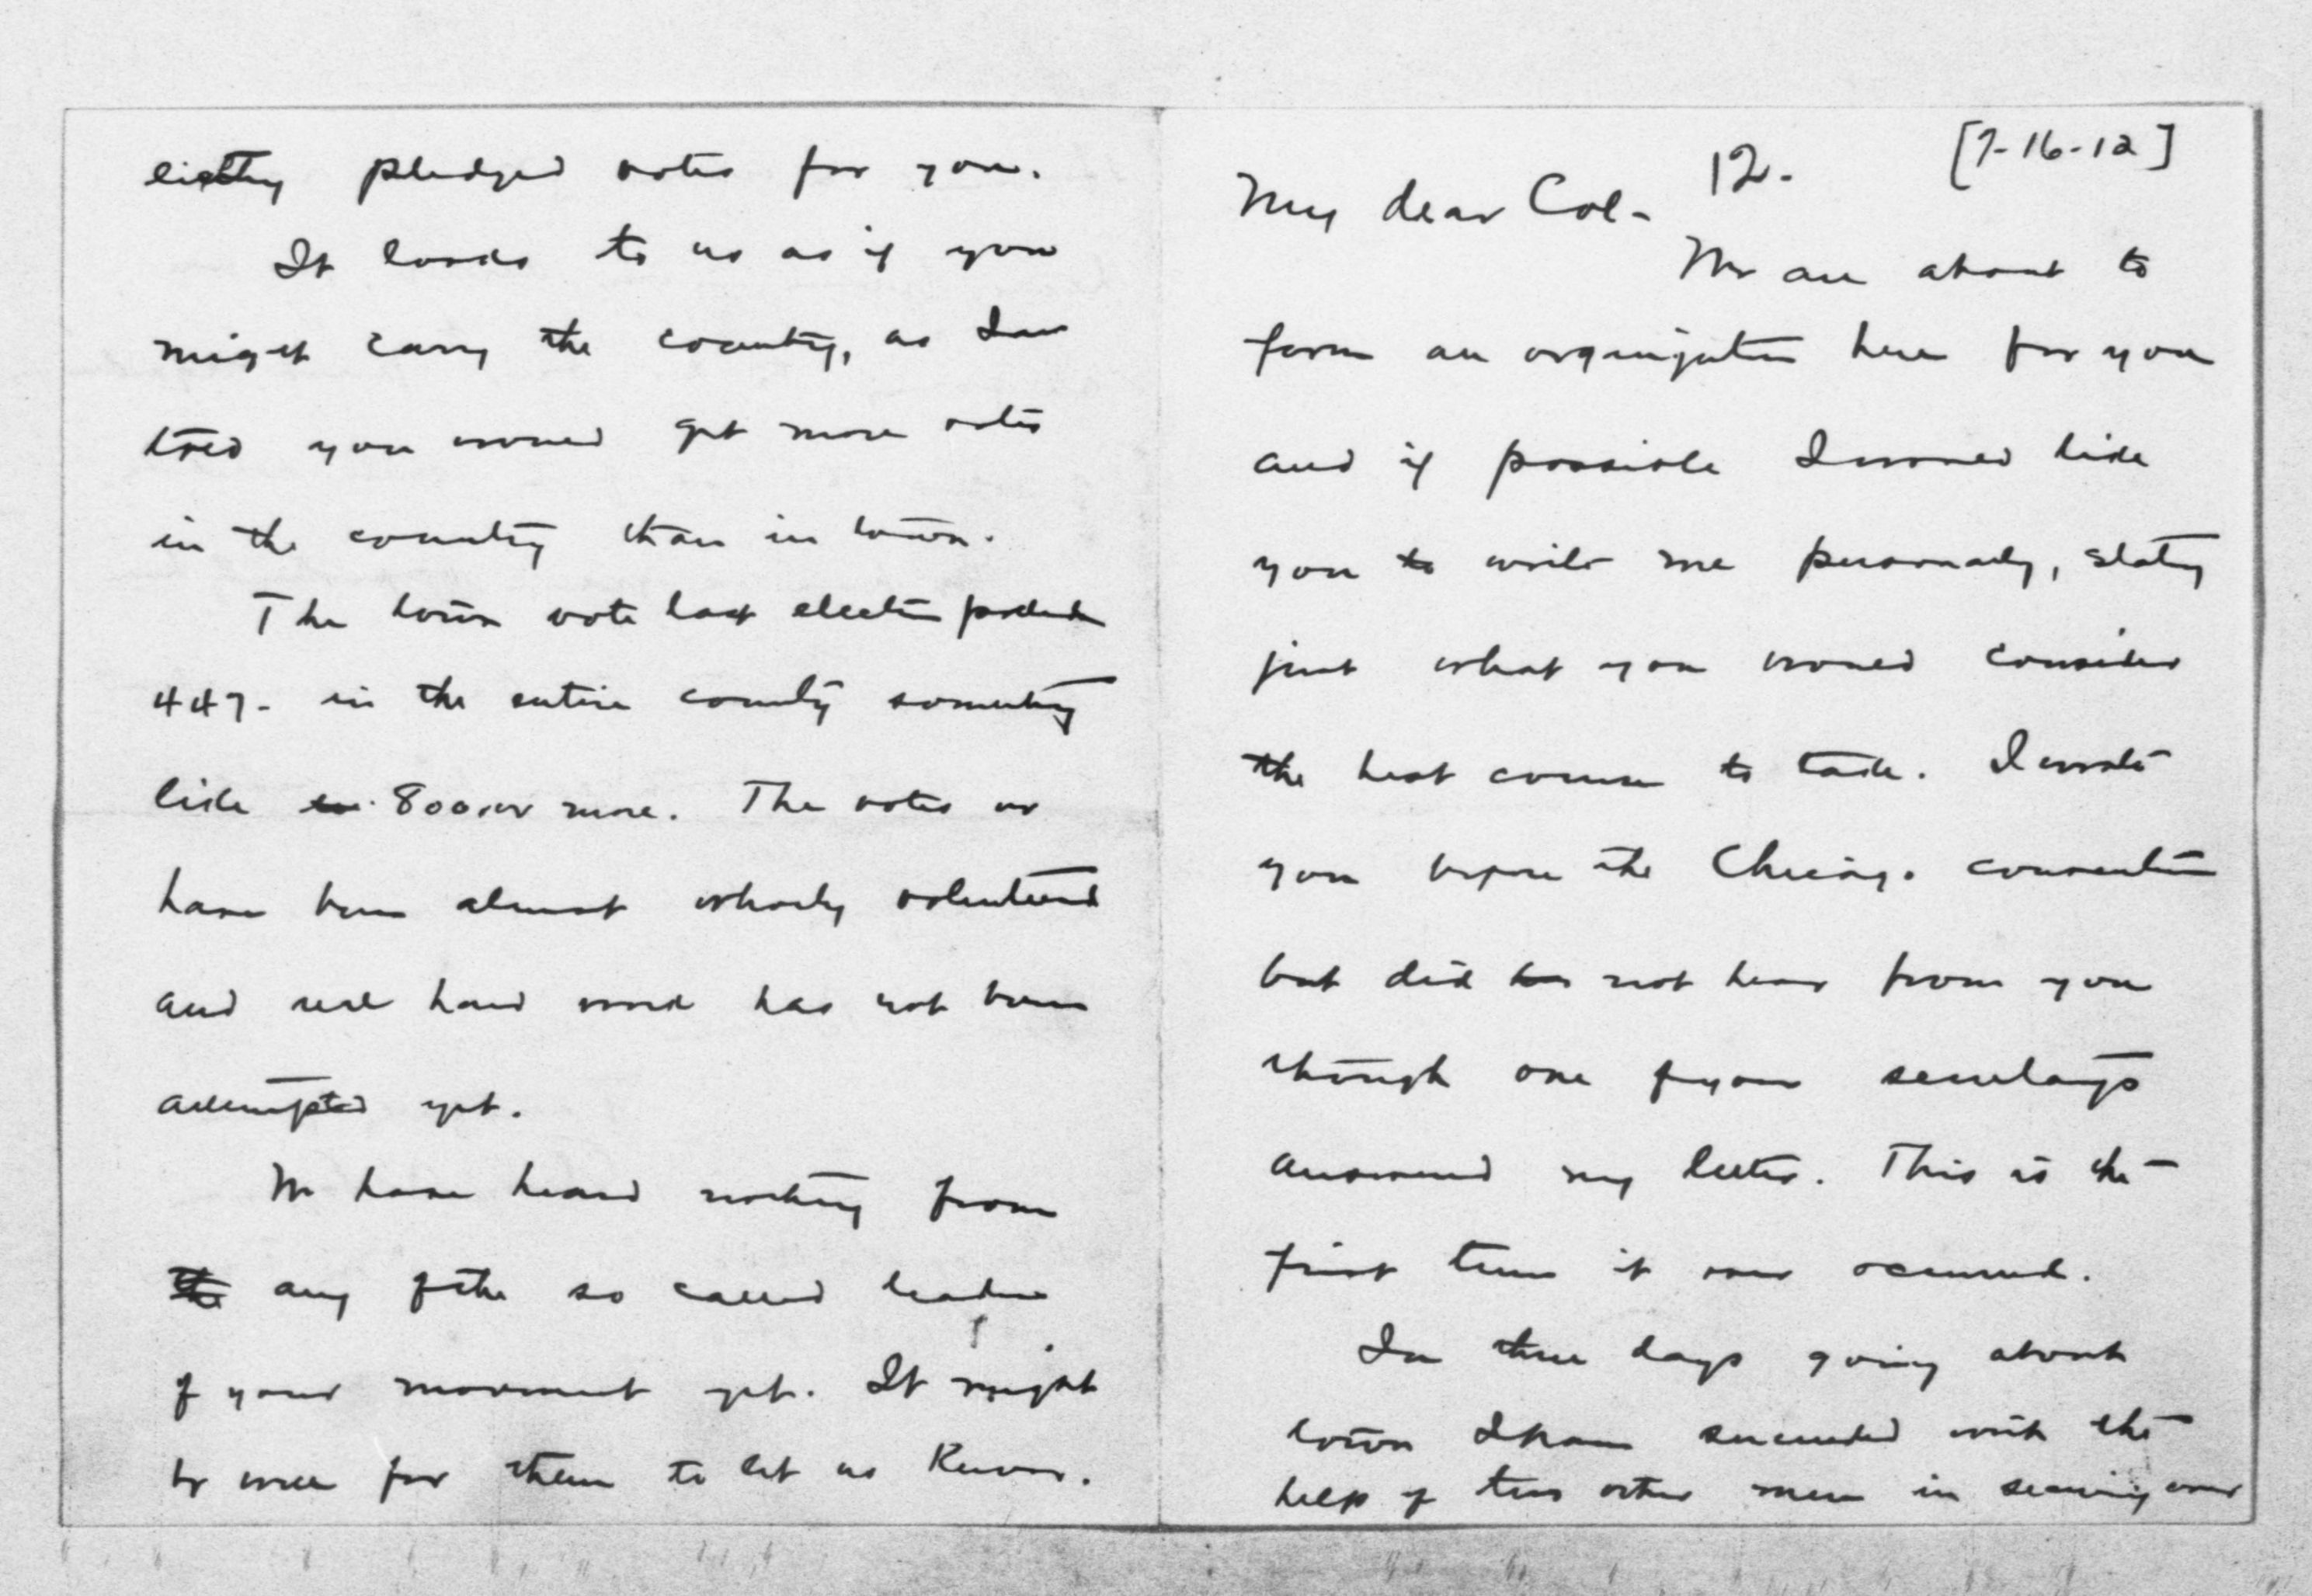 12.
[7-16-12]
My dear Col-
We are about to
form an organization here for you
and if possible I would like
you to write me personally, stating
just what you would consider
the best course to take. I wrote
you before the Chicago convention
but did not hear from you
though one of your secretarys
answered my letter. This is the
first time it ever occurred.
In three days going about
town I have succeeded with the
help of two other men in securing over
eighty pledged votes for you.
It looks to us as if you
might carry the county, as I am
told you would get more votes
in the country than in town.
The town vote last election polled
447- in the entire county something
like 800 or more. The votes we
have been almost wholly volunteered
and real hard work has not been
attempted yet.
We have heard nothing from
any of the so called leaders
of your movement yet. It might
be well for them to let us know.